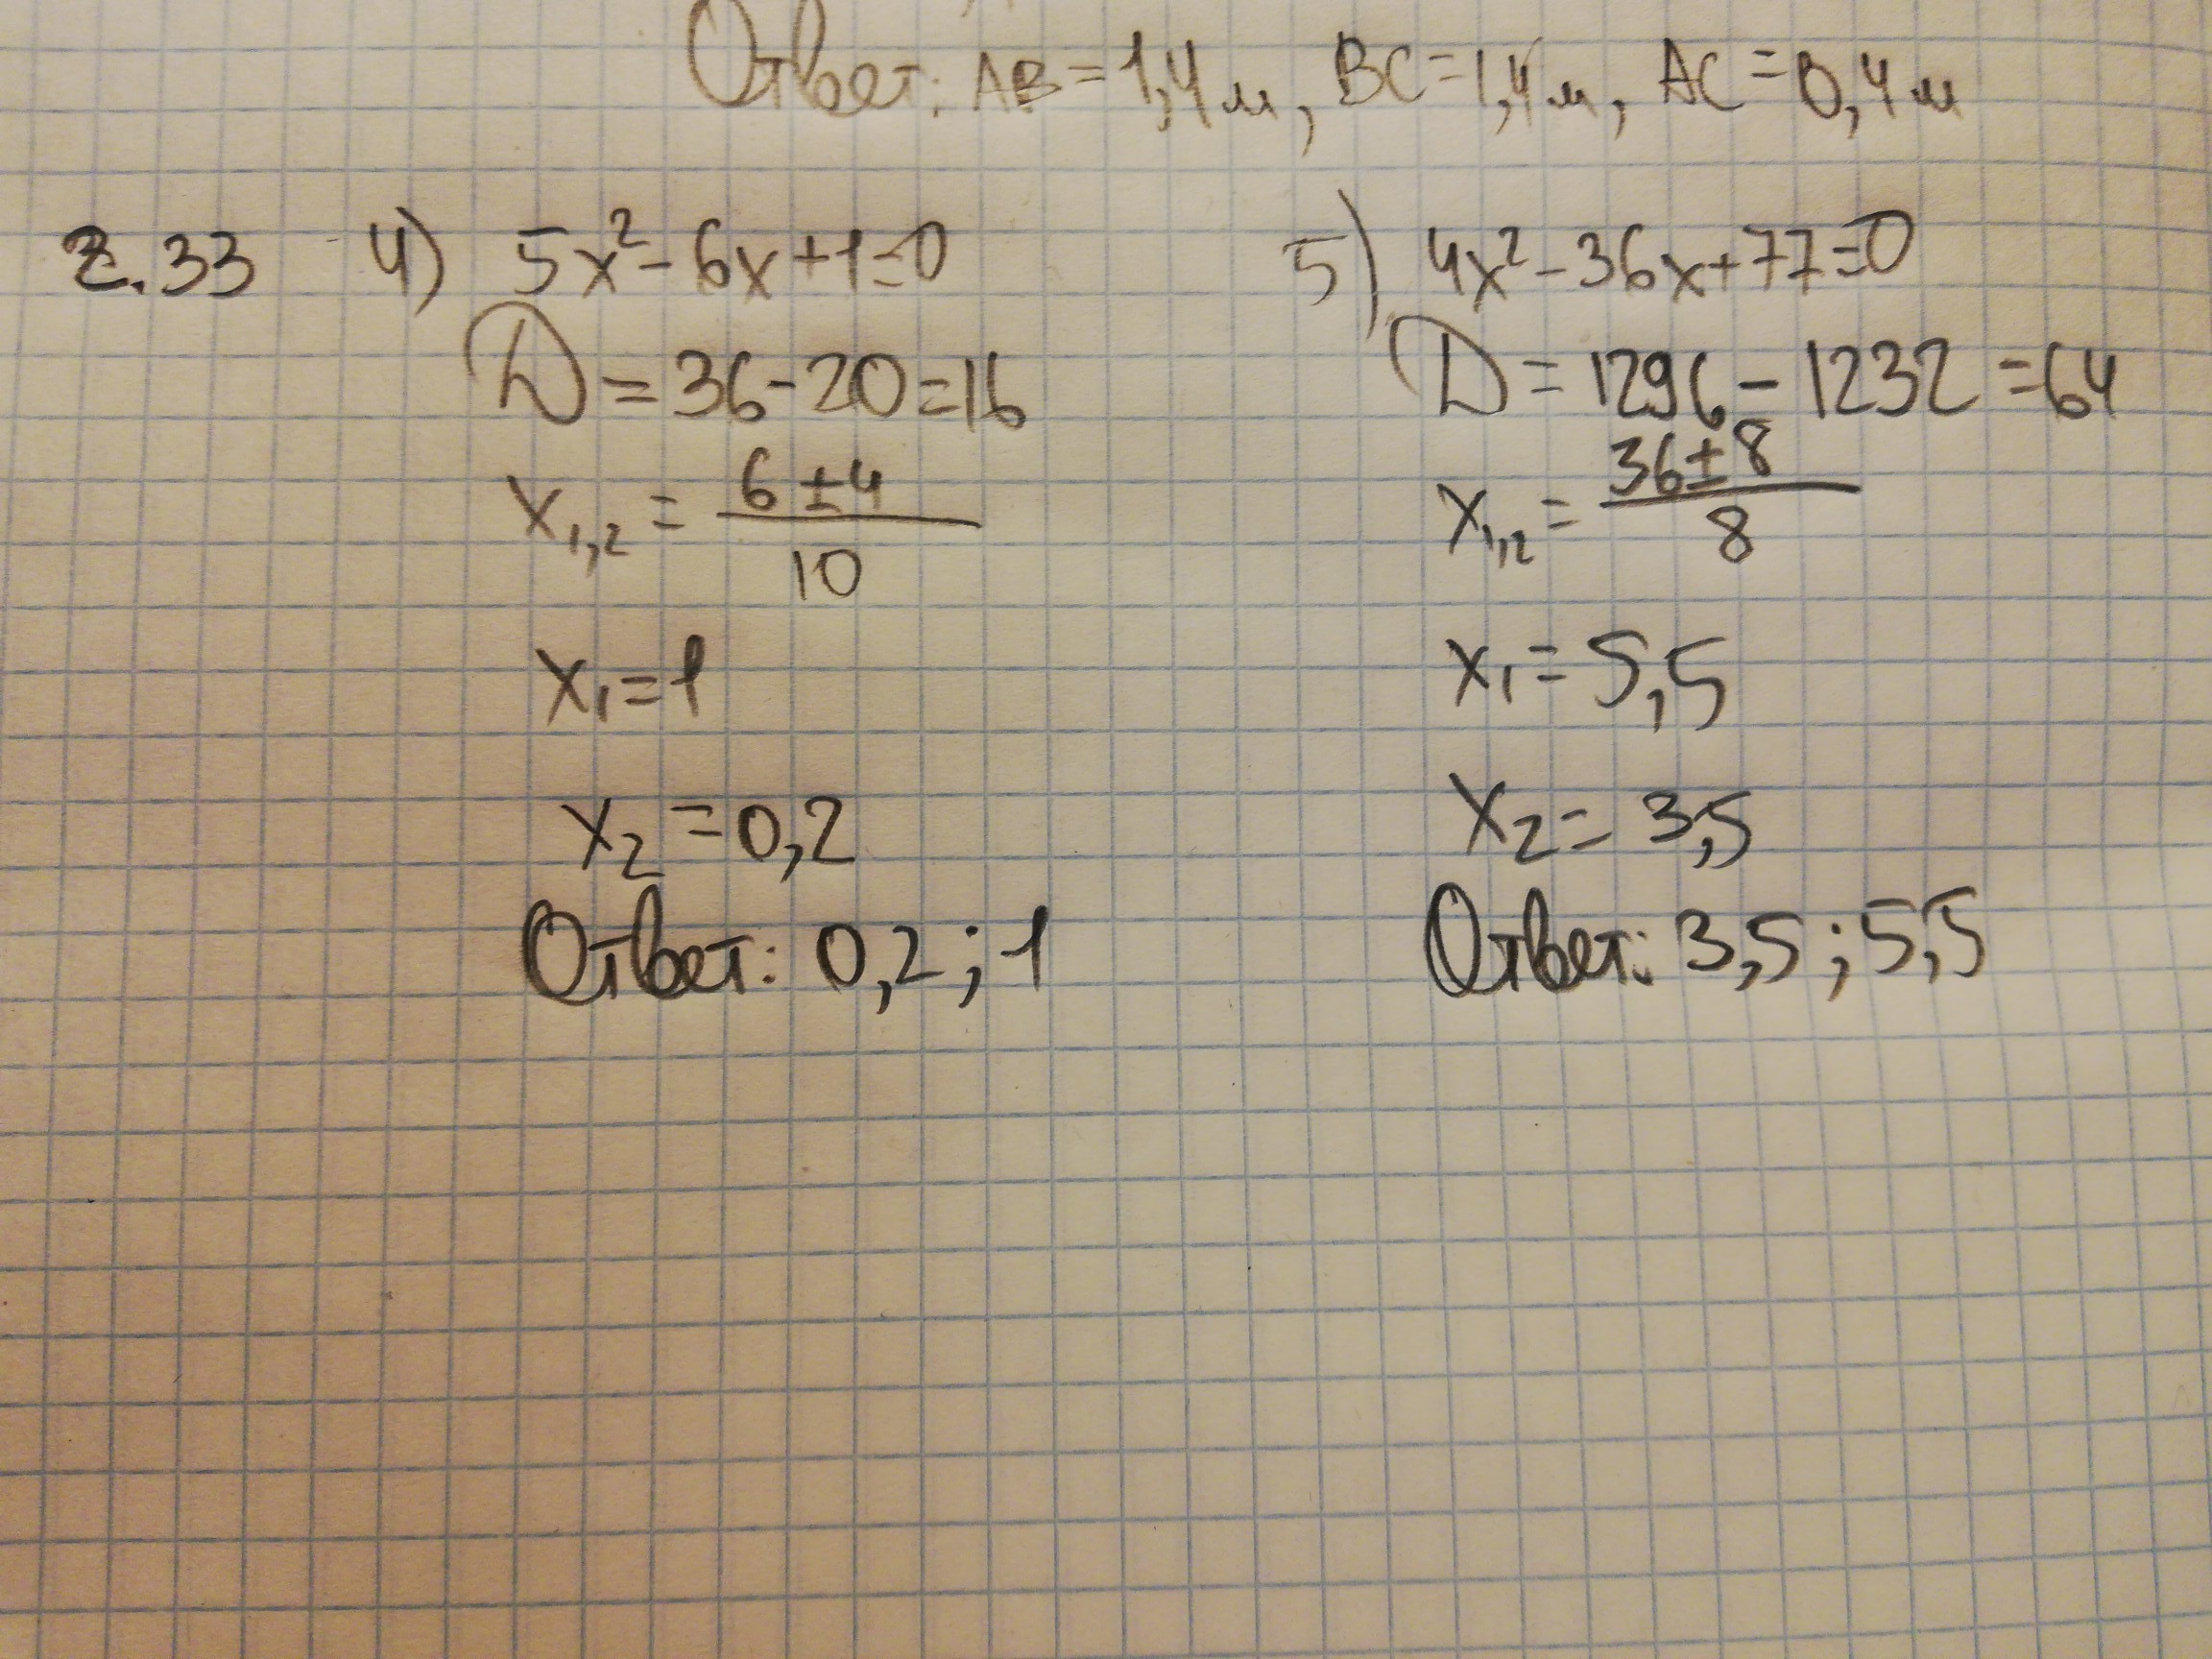 Ответ: AB = 1,4 м, BC = 1,4 м, AC = 0,4 м
2.33 4) 5x² - 6x + 1 = 0
D = 36 - 20 = 16
x₁,₂ = (6 ± 4)/10
x₁ = 1
x₂ = 0,2
Ответ: 0,2; 1
5) 4x² - 36x + 77 = 0
D = 1296 - 1232 = 64
x₁,₂ = (36 ± 8)/8
x₁ = 5,5
x₂ = 3,5
Ответ: 3,5; 5,5